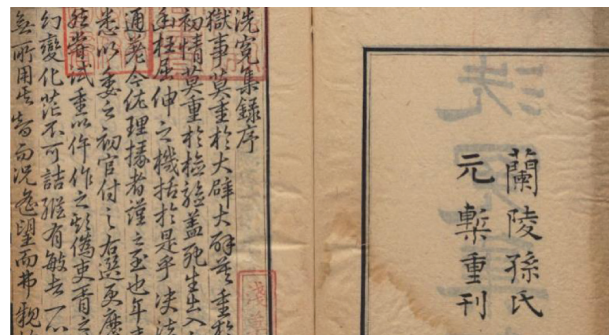 蘭陵孫氏
元槧重刊
洗冤集錄序
獄事莫重於大辟大辟莫重於
初情莫重於檢驗蓋死生出入
幽枉屈伸之機括於是乎决法
通差令佐理掾者謹之至也年
悉以委之初官付之右選更歷
然嘗試重以仵作之欺僞吏胥之
幻變化茫不可詰縱有敏者一心
無所用其智而況遙望而弗親